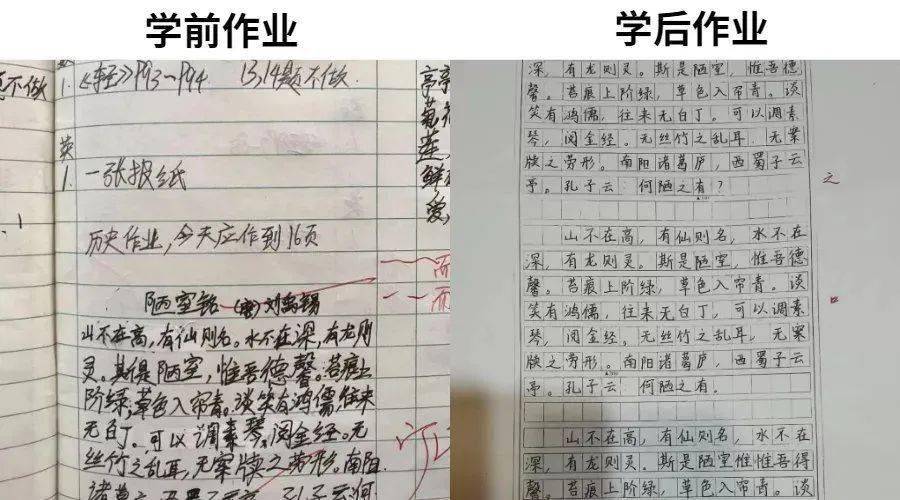 学前作业
不做
1. 《轻》P93~P94 13,14题不做.
英
1. 一张报纸
历史作业,今天应作到16页
陋室铭 (唐) 刘禹锡
山不在高,有仙则名。水不在深,有龙则
灵。斯是陋室,惟吾德馨。苔痕上
阶绿,草色入帘青。谈笑有鸿儒往来
无白丁。可以调素琴,阅金经。无
丝竹之乱耳,无案牍之劳形。南阳
诸葛
孔子云何
亭
葡
莲
鲜
爱,
学后作业
深,有龙则灵。斯是陋室,惟吾德
馨。苔痕上阶绿,草色入帘青。谈
笑有鸿儒,往来无白丁。可以调素
琴,阅金经。无丝竹之乱耳,无案
牍之劳形。南阳诸葛庐,西蜀子云
亭。孔子云 何陋之有?
之
山不在高,有仙则名,水不在
深,有龙则灵。斯是陋室,惟吾德
馨。苔痕上阶绿,草色入帘青。谈
笑有鸿儒,往来无白丁,可以调素
琴,阅金经。无丝竹之乱耳,无案
牍之劳形。南阳诸葛庐,西蜀子云
亭。孔子云 何陋之有。
山不在高,有仙则名,水不在
深,有龙则灵。斯是陋室惟惟吾得
馨。苔痕上阶绿,草色入帘青。谈